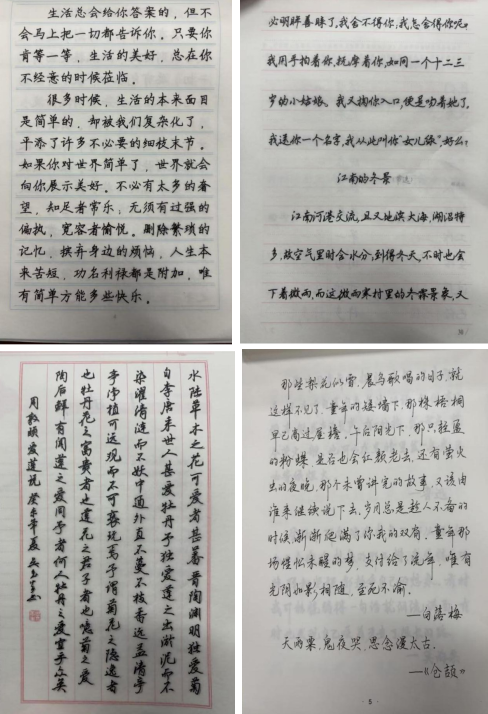 生活总会给你答案的，但不
会马上把一切都告诉你。只要你
肯等一等，生活的美好，总在你
不经意的时候莅临。
很多时候，生活的本来面目
是简单的，却被我们复杂化了，
平添了许多不必要的细枝末节。
如果你对世界简单了，世界就会
向你展示美好。不必有太多的奢
望，知足者常乐；无须有过强的
偏执，宽容者愉悦。删除繁琐的
记忆，摈弃身边的烦恼，人生本
来苦短，功名利禄都是附加，唯
有简单方能多些快乐。
必明眸善睐了。我舍不得你；我怎舍得你呢？
我用手拍着你，抚摩着你，如同一个十二三
岁的小姑娘。我又掬你入口，便是吻着她了。
我送你一个名字，我从此叫你“女儿绿”，好么？
江南的冬景
江南河港交流，且又地滨大海，湖沼特
多，故空气里时含水分；到得冬天，不时也会
下着微雨，而这微雨寒村里的冬霖景象，又
水陆草木之花可爱者甚蕃晋陶渊明独爱菊
自李唐来世人甚爱牡丹予独爱莲之出淤泥而不
染濯清涟而不妖中通外直不蔓不枝香远益清亭
亭净植可远观而不可亵玩焉予谓菊花之隐逸者
也牡丹花之富贵者也莲花之君子者也噫菊之爱
陶后鲜有闻莲之爱同予者何人牡丹之爱宜乎众矣
周敦颐爱莲说 癸未年夏
那些梨花似雪，晨鸟歌唱的日子，就
这样不见了。童年的矮墙下，那株梧桐
早已高过屋墙，午后阳光下，那只轻盈
的粉蝶，是否也会红颜老去，还有萤火
虫的夜晚，那个未曾讲完的故事，又该由
谁来继续说下去。岁月总是趁人不备的
时候，渐渐爬满了你我的双肩，童年那
场惺忪未醒的梦，支付给了流年，唯有
光阴如影相随，至死不渝。
—白落梅
天雨粟，鬼夜哭，思念漫太古。
—《仓颉》
5